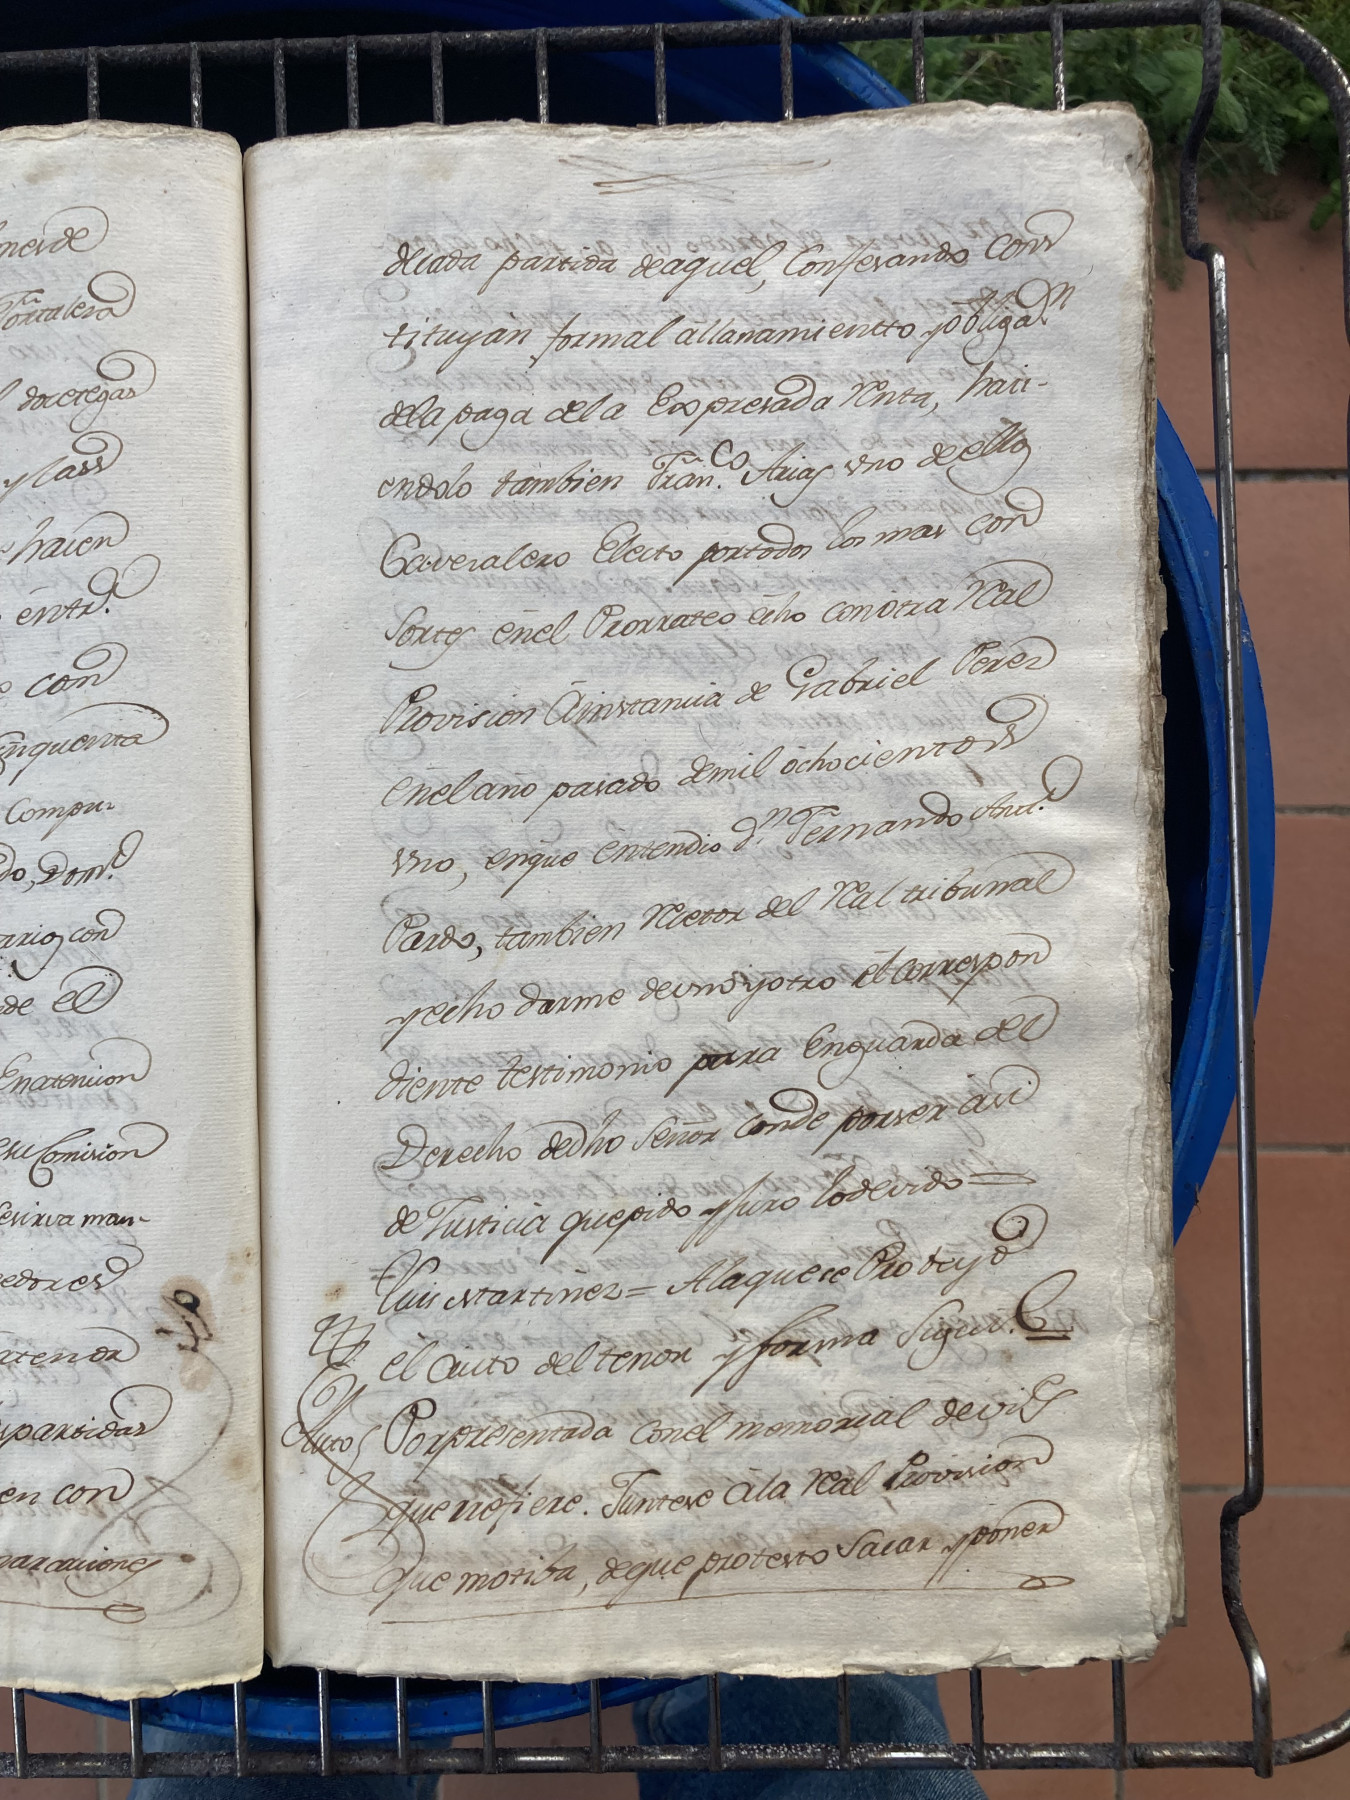 nes de
Fortaleza
docetegas
y lass
haien
entr.
con
inquenta
Compu-
do, Dom.
ario, con
de el
En atencion
su Comision
sesirva man-
eedores
atenor
s partidas
en con
maracuiones
decada partida de aquel, Confesando Cons
tituyan formal allanamientto y obligaz.n
dela paga dela Expresada Renta, haci-
endolo tambien Fran.co Arias uno de ellos
Caveralero Electo por todos los mas con
Sortes enel Prorrateo echo con otra Real
Provision A instancia de Gabriel Perez
enel año pasado de mil ochocientoss
uno, en que entendio d.n Fernando Ant.o
Pardo, tambien Rector del Real tribunal
y echo darme de uno y otro el correspon
diente testimonio para Enguarda del
Derecho dedho Señor Conde por ser asi
de Justicia que pido y juro lo devido =
Luis Martinez = A la que se Probeyó
el auto del tenor y forma Siguie.
Auto
Por presentada con el memorial de vie.s
que refiere. Juntese a la Real Provision
que motiba, de que protesto sacar y poner